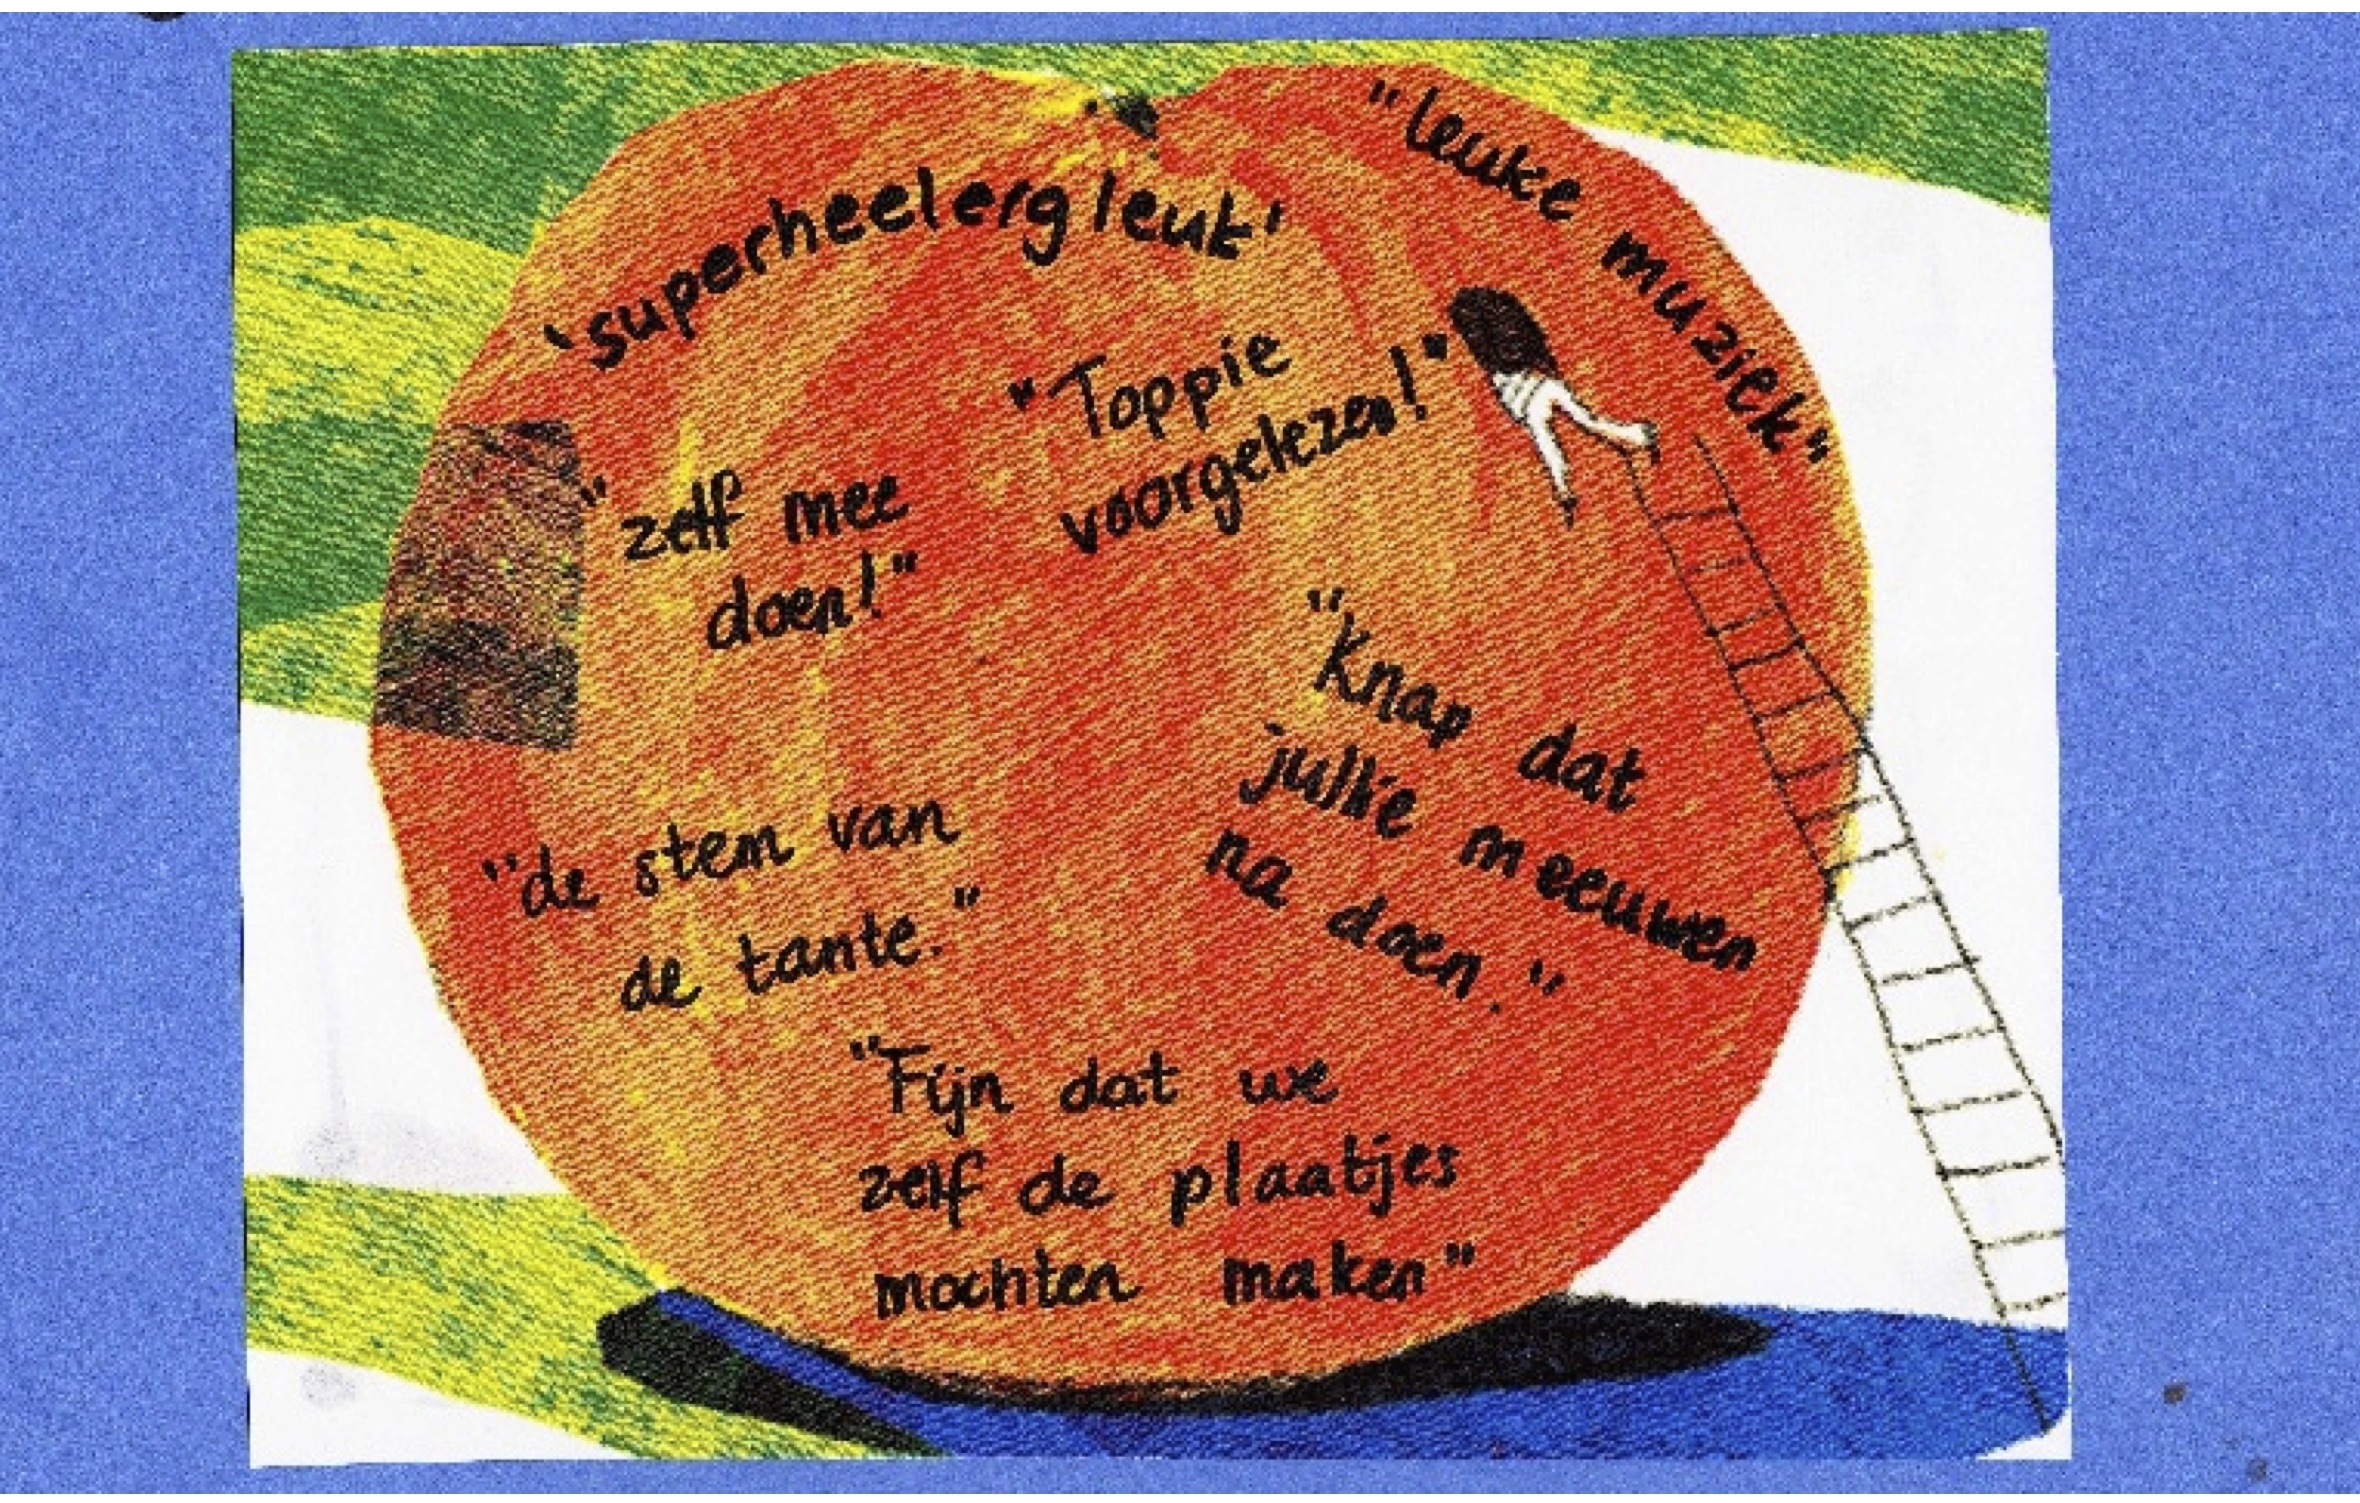 'superheelergleuk'
"leuke muziek"
"Toppie
voorgelezen!"
"zelf mee
doen!"
"Knap dat
jullie meeuwen
na doen."
"de stem van
de tante."
"Fijn dat we
zelf de plaatjes
mochten maken"